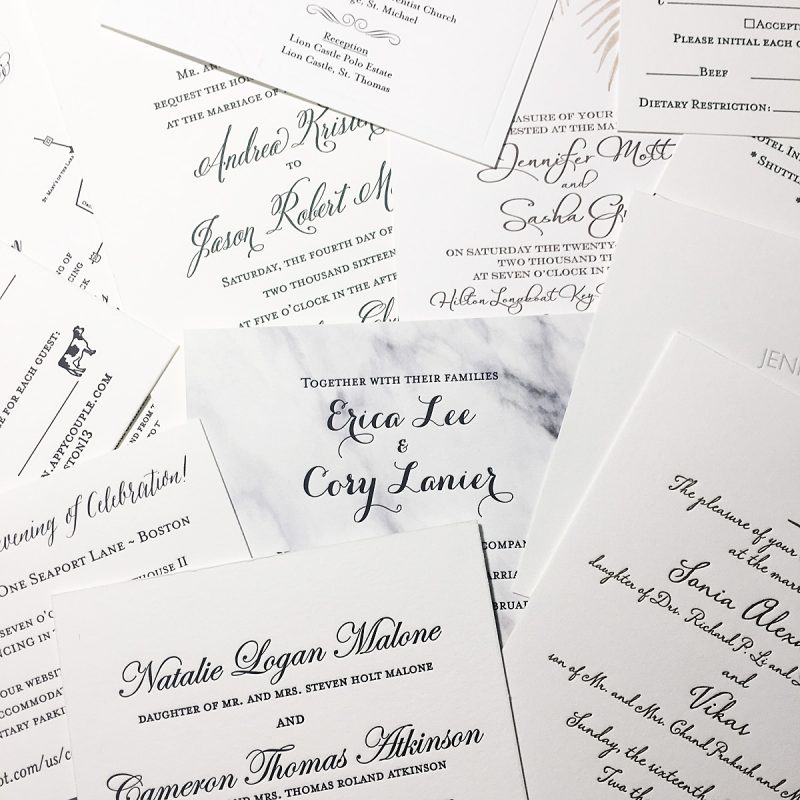 entist Church
St. Michael
Reception
Lion Castle Polo Estate
Lion Castle, St. Thomas
☐Accept
Please initial each
Beef
Dietary Restriction:
Mr. an
request the ho
at the marriage of
Andrea Kriste
to
Jason Robert M
Saturday, the fourth day of
two thousand sixteen
at five o'clock in the afte
asure of your
ested at the ma
Jennifer Mott
and
Sasha Gr
on Saturday the twenty-
two thousand
at seven o'clock in t
Hilton Longboat Key
otel In
* Shuttl
JEN
St. Mary's of the Lake
ng of
cing
e for each guest:
.appycouple.com/
ston13
and from
to t
Together with their families
Erica Lee
&
Cory Lanier
compan
arria
bruar
vening of Celebration!
One Seaport Lane ~ Boston
thouse II
seven o'c
ncing in
our website
ccommodat
entary parki
ot.com/us/c
Natalie Logan Malone
daughter of Mr. and Mrs. Steven Holt Malone
and
Cameron Thomas Atkinson
Mrs. Thomas Roland Atkinson
The pleasure of your
at the marri
Sonia Alexi
daughter of Drs. Richard P. Li and L
and
Vikas
son of Mr. and Mrs. Chand Prakash and M
Sunday, the sixteenth
Two th